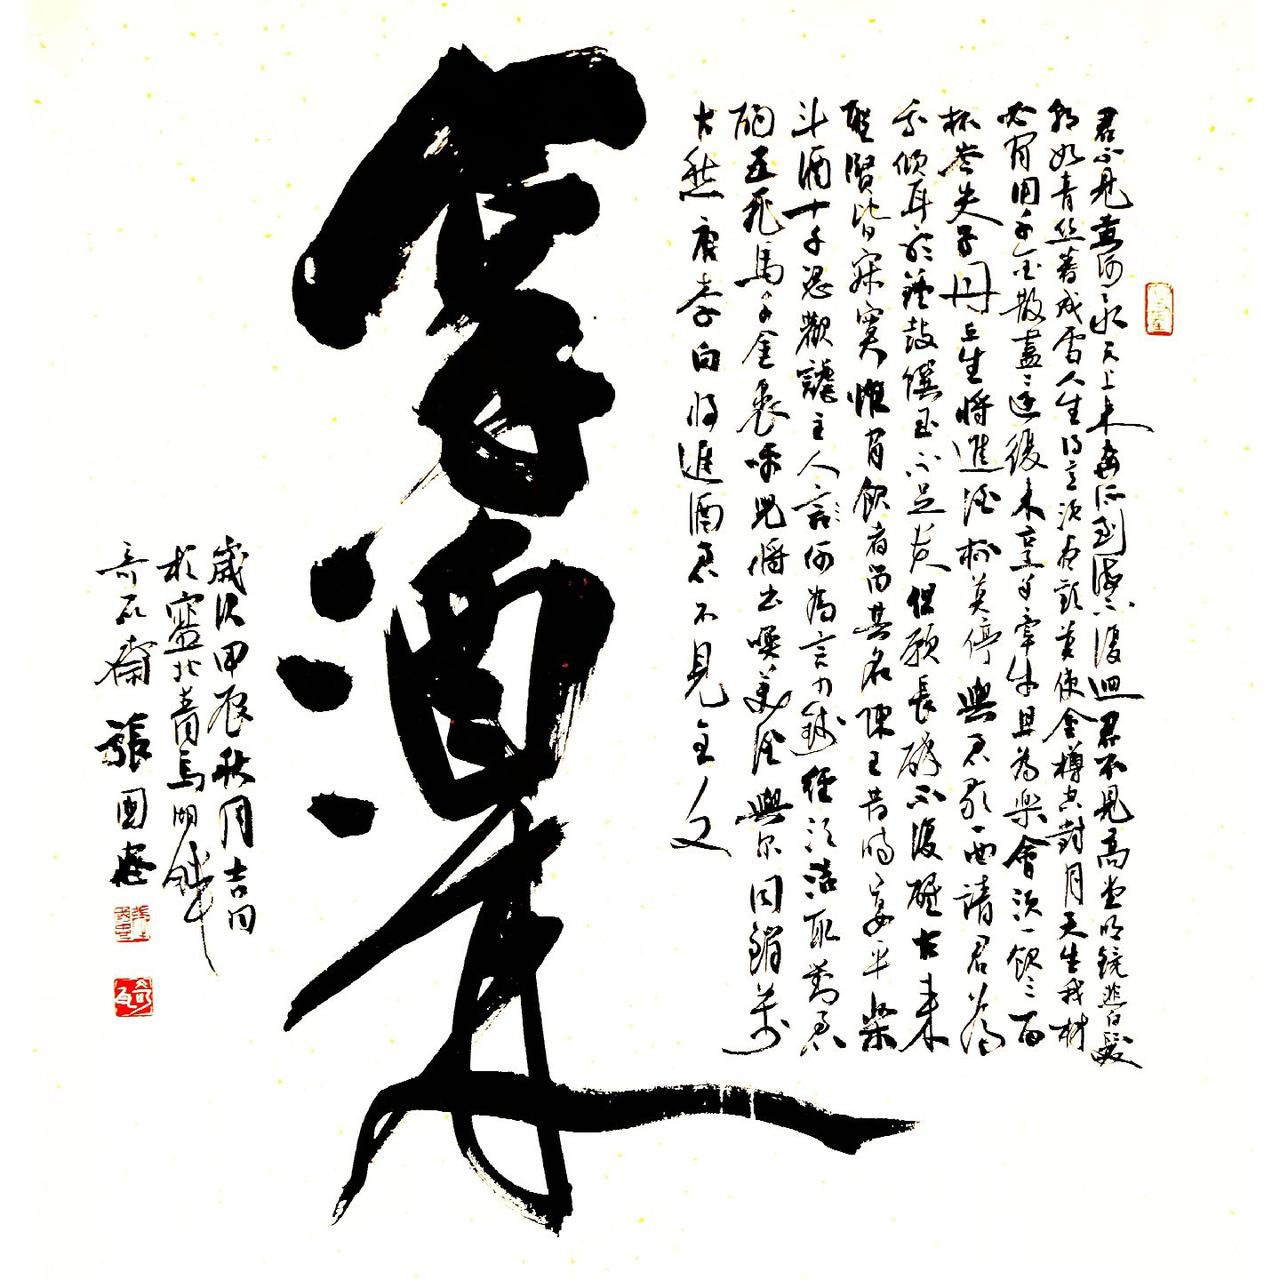 君不見黃河之水天上来奔流到海不復回君不見高堂明鏡悲白髮
朝如青丝暮成雪人生得意须盡歡莫使金樽空對月天生我材
必有用千金散盡還復来烹羊宰牛且為樂會须一飲三百
杯岑夫子丹丘生將進酒杯莫停與君歌一曲請君為
我傾耳聽鐘鼓饌玉不足貴但願長醉不復醒古来
聖賢皆寂寞惟有飲者留其名陳王昔時宴平樂
斗酒十千恣歡謔主人言何為言少錢徑须沽取對君
酌五花馬千金裘呼兒將出換美酒與尔同銷萬
古愁唐李白將進酒君不見主人
拿酒来
歲次甲辰秋月吉日
於塞北青鳥湖畔
奇石齋張國